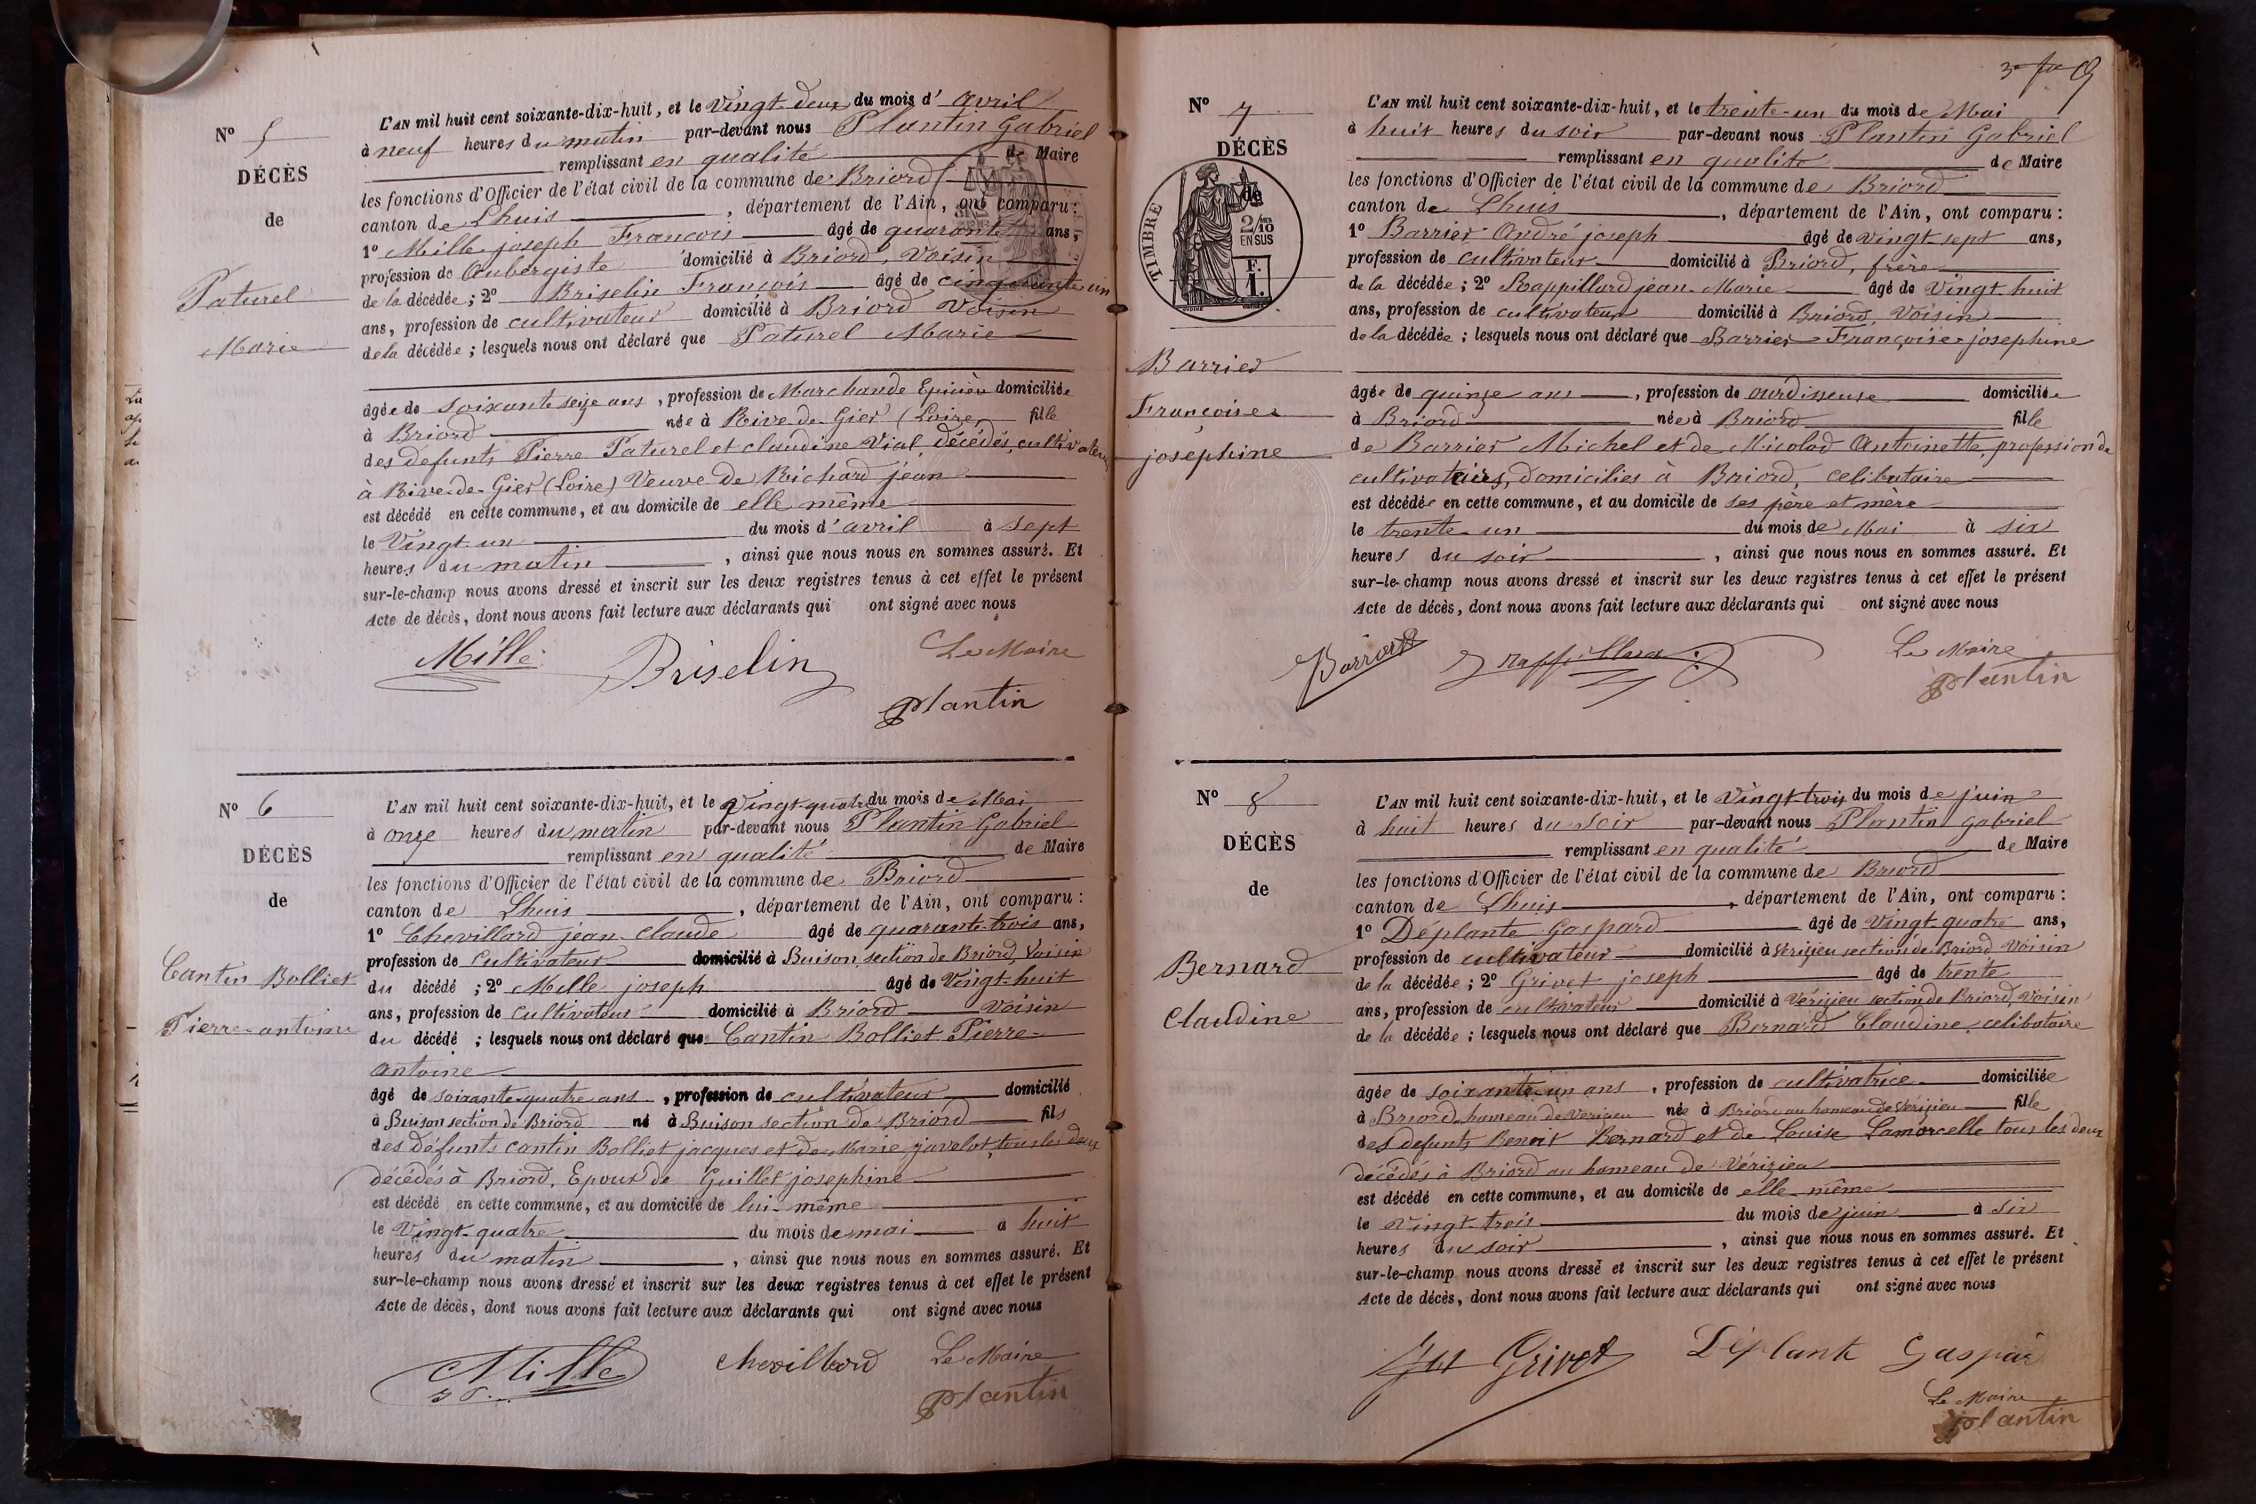 Nº 5
DÉCÈS
de
Paturel
Marie
L'AN mil huit cent soixante-dix-huit, et le Vingt deux du mois d'avril
à neuf heures du matin par-devant nous Plantin Gabriel
remplissant en qualité de Maire
les fonctions d'Officier de l'état civil de la commune de Briord
canton de Lhuis, département de l'Ain, ont comparu :
1º Mille joseph François âgé de quarante ans,
profession de Aubergiste domicilié à Briord, Voisin
de la décédée ; 2º Briselin François âgé de cinquante un
ans, profession de cultivateur domicilié à Briord Voisin
de la décédée ; lesquels nous ont déclaré que Paturel Marie
âgée de soixante seize ans, profession de Marchande Epicière domiciliée
à Briord née à Rive-de-Gier (Loire) fille
des defunts Pierre Paturel et claudine Vial, décédés, cultivateurs
à Rive-de-Gier (Loire) Veuve de Richard jean
est décédé en cette commune, et au domicile de elle même
le Vingt-un du mois d'avril à sept
heures du matin, ainsi que nous nous en sommes assuré. Et
sur-le-champ nous avons dressé et inscrit sur les deux registres tenus à cet effet le présent
Acte de décès, dont nous avons fait lecture aux déclarants qui ont signé avec nous
Mille Briselin Le Maire
Plantin
Nº 6
DÉCÈS
de
Cantin Bolliet
Pierre-antoine
L'AN mil huit cent soixante-dix-huit, et le Vingt-quatre du mois de Mai
à onze heures du matin par-devant nous Plantin Gabriel
remplissant en qualité de Maire
les fonctions d'Officier de l'état civil de la commune de Briord
canton de Lhuis, département de l'Ain, ont comparu :
1º Chevillard jean-claude âgé de quarante-trois ans,
profession de Cultivateur domicilié à Buison, section de Briord, Voisin
du décédé ; 2º Mille joseph âgé de Vingt-huit
ans, profession de Cultivateur domicilié à Briord Voisin
du décédé ; lesquels nous ont déclaré que Cantin Bolliet Pierre-
antoine
âgé de soixante-quatre ans, profession de cultivateur domicilié
à Buison section de Briord né à Buison section de Briord fils
des Défunts cantin Bolliet jacques et de Marie javelot, tous les deux
décédés à Briord, Epoux de Guillet josephine
est décédé en cette commune, et au domicile de lui-même
le Vingt-quatre du mois de mai à huit
heures du matin, ainsi que nous nous en sommes assuré. Et
sur-le-champ nous avons dressé et inscrit sur les deux registres tenus à cet effet le présent
Acte de décès, dont nous avons fait lecture aux déclarants qui ont signé avec nous
Mille chevillard Le Maire
Plantin
Nº 7
DÉCÈS
de
TIMBRE
2/10
EN SUS
F.
1.
Barrier
Françoise
joséphine
L'AN mil huit cent soixante-dix-huit, et le trente-un du mois de Mai
à huit heures du soir par-devant nous Plantin Gabriel
remplissant en qualité de Maire
les fonctions d'Officier de l'état civil de la commune de Briord
canton de Lhuis, département de l'Ain, ont comparu :
1º Barrier André joseph âgé de vingt sept ans,
profession de cultivateur domicilié à Briord, frère
de la décédée ; 2º Rappillard jean-Marie âgé de Vingt-huit
ans, profession de cultivateur domicilié à Briord, Voisin
de la décédée ; lesquels nous ont déclaré que Barrier-Françoise-josephine
âgée de quinze ans, profession de ourdisseuse domiciliée
à Briord née à Briord fille
de Barrier Michel et de Micolod Antoinette, profession de
cultivateurs, domicilies à Briord, celibataire
est décédée en cette commune, et au domicile de ses père et mère
le trente-un du mois de Mai à six
heures du soir, ainsi que nous nous en sommes assuré. Et
sur-le-champ nous avons dressé et inscrit sur les deux registres tenus à cet effet le présent
Acte de décès, dont nous avons fait lecture aux déclarants qui ont signé avec nous
rappillard Le Maire
Plantin
Nº 8
DÉCÈS
de
Bernard
Claudine
L'AN mil huit cent soixante-dix-huit, et le Vingt trois du mois de juin
à huit heures du soir par-devant nous Plantin Gabriel
remplissant en qualité de Maire
les fonctions d'Officier de l'état civil de la commune de Briord
canton de Lhuis, département de l'Ain, ont comparu :
1º Déplante Gaspard âgé de Vingt quatre ans,
profession de cultivateur domicilié à Vérizieu section de Briord Voisin
de la décédée ; 2º Grivet joseph âgé de trente
ans, profession de cultivateur domicilié à Vérizieu section de Briord, Voisin
de la décédée ; lesquels nous ont déclaré que Bernard Claudine, celibataire
âgée de soixante-un ans, profession de cultivatrice domiciliée
à Briord, hameau de Verizieu née à Briord au hameau de Vérizieu fille
des defunts Benoit Bernard et de Louise Lamorcelle tous les deux
décédés à Briord au hameau de Vérizieu
est décédé en cette commune, et au domicile de elle-même
le Vingt-trois du mois de juin à six
heures du soir, ainsi que nous nous en sommes assuré. Et
sur-le-champ nous avons dressé et inscrit sur les deux registres tenus à cet effet le présent
Acte de décès, dont nous avons fait lecture aux déclarants qui ont signé avec nous
Grivet Déplante Gaspard
Le Maire
Plantin